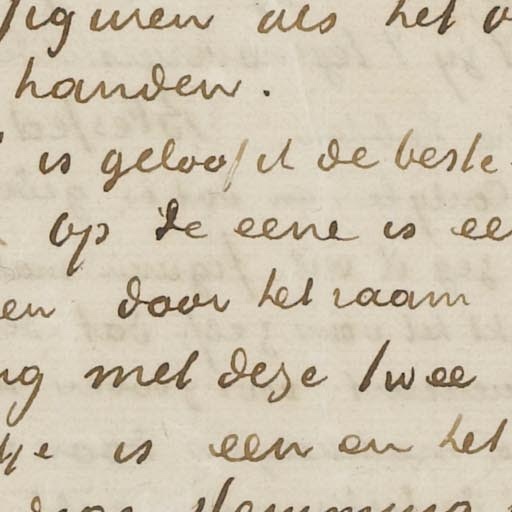 figuren als het
handen.
is geloof ik de beste
Op de eene is
door het raam
met deze twee
is een en het
stemming